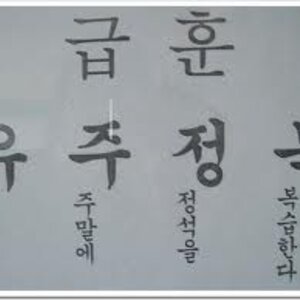 급훈
주 정
주말에
정석을
복습한다